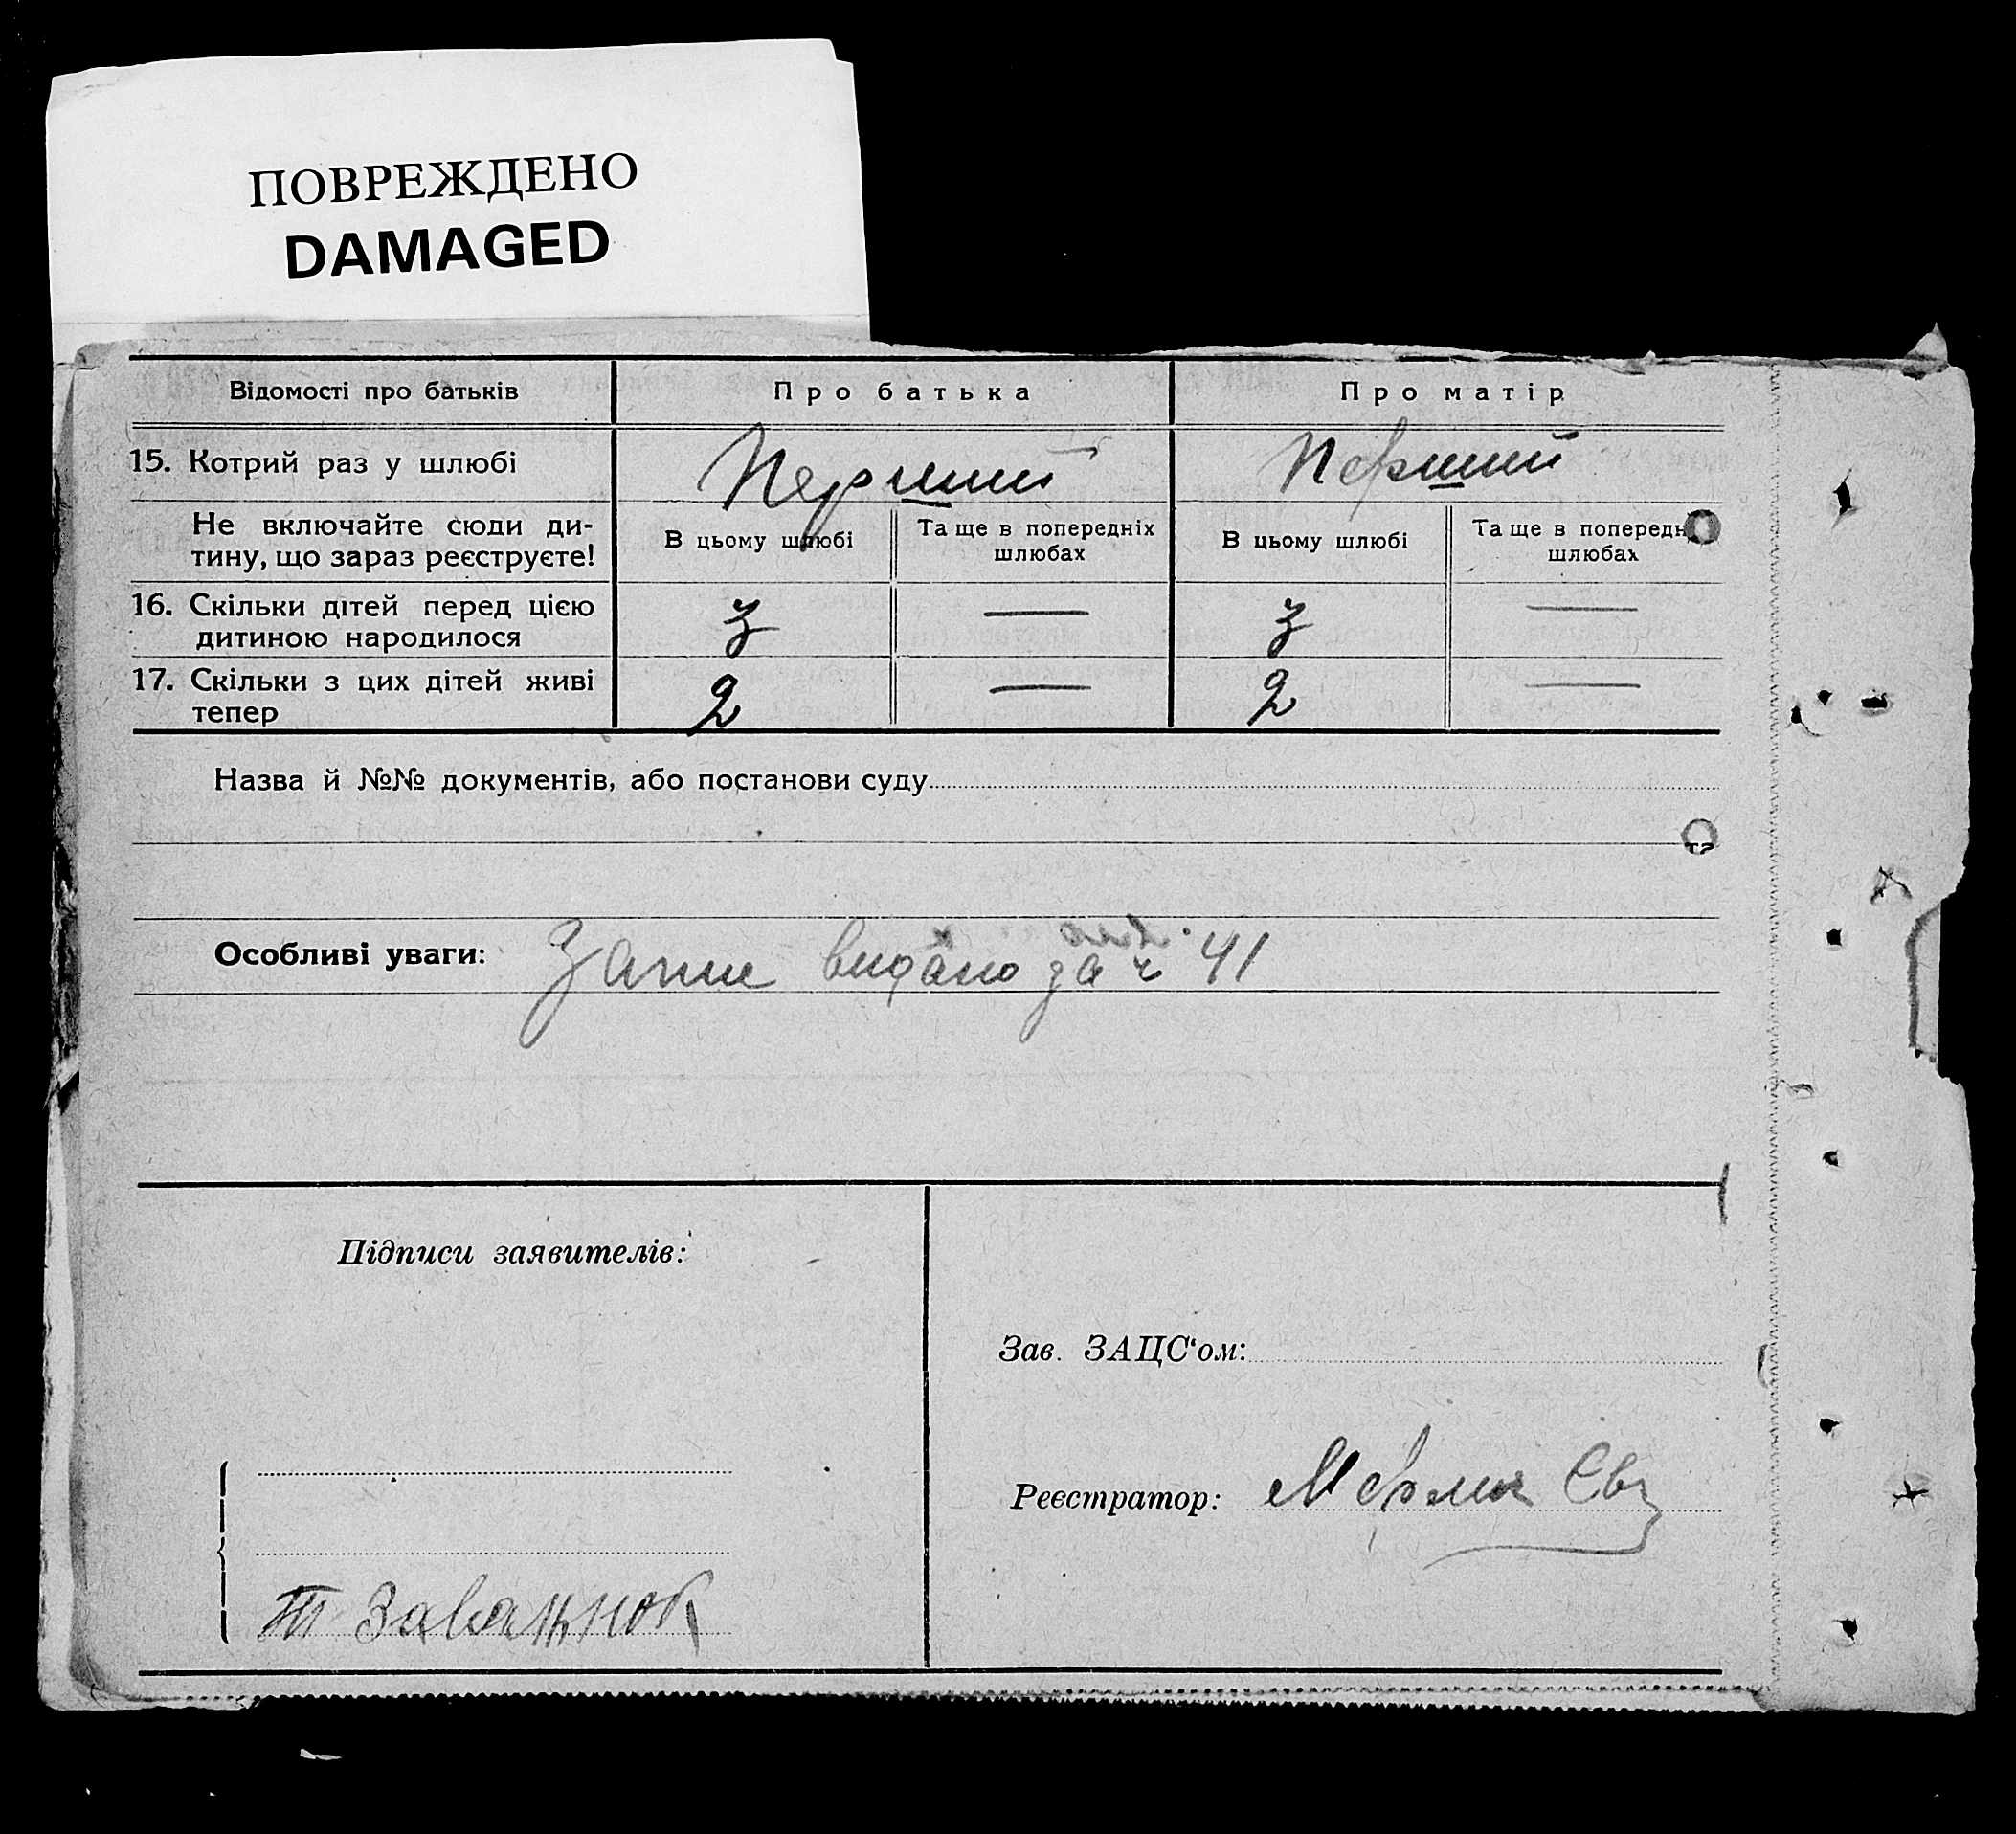 ПОВРЕЖДЕНО
DAMAGED
Відомості про батьків
Про батька
Про матір
15. Котрий раз у шлюбі
Перший
Перший
Не включайте сюди ди-
тину, що зараз реєструєте!
В цьому шлюбі
Та ще в попередніх
шлюбах
В цьому шлюбі
Та ще в попередн
шлюбах
16. Скільки дітей перед цією
дитиною народилося
3
—
3
—
17. Скільки з цих дітей живі
тепер
2
—
2
—
Назва й №№ документів, або постанови суду
Особливі уваги: видано за ч 41
Підписи заявителів:
Зав. ЗАЦС‘ом:
Реєстратор:
Т Завальнюк